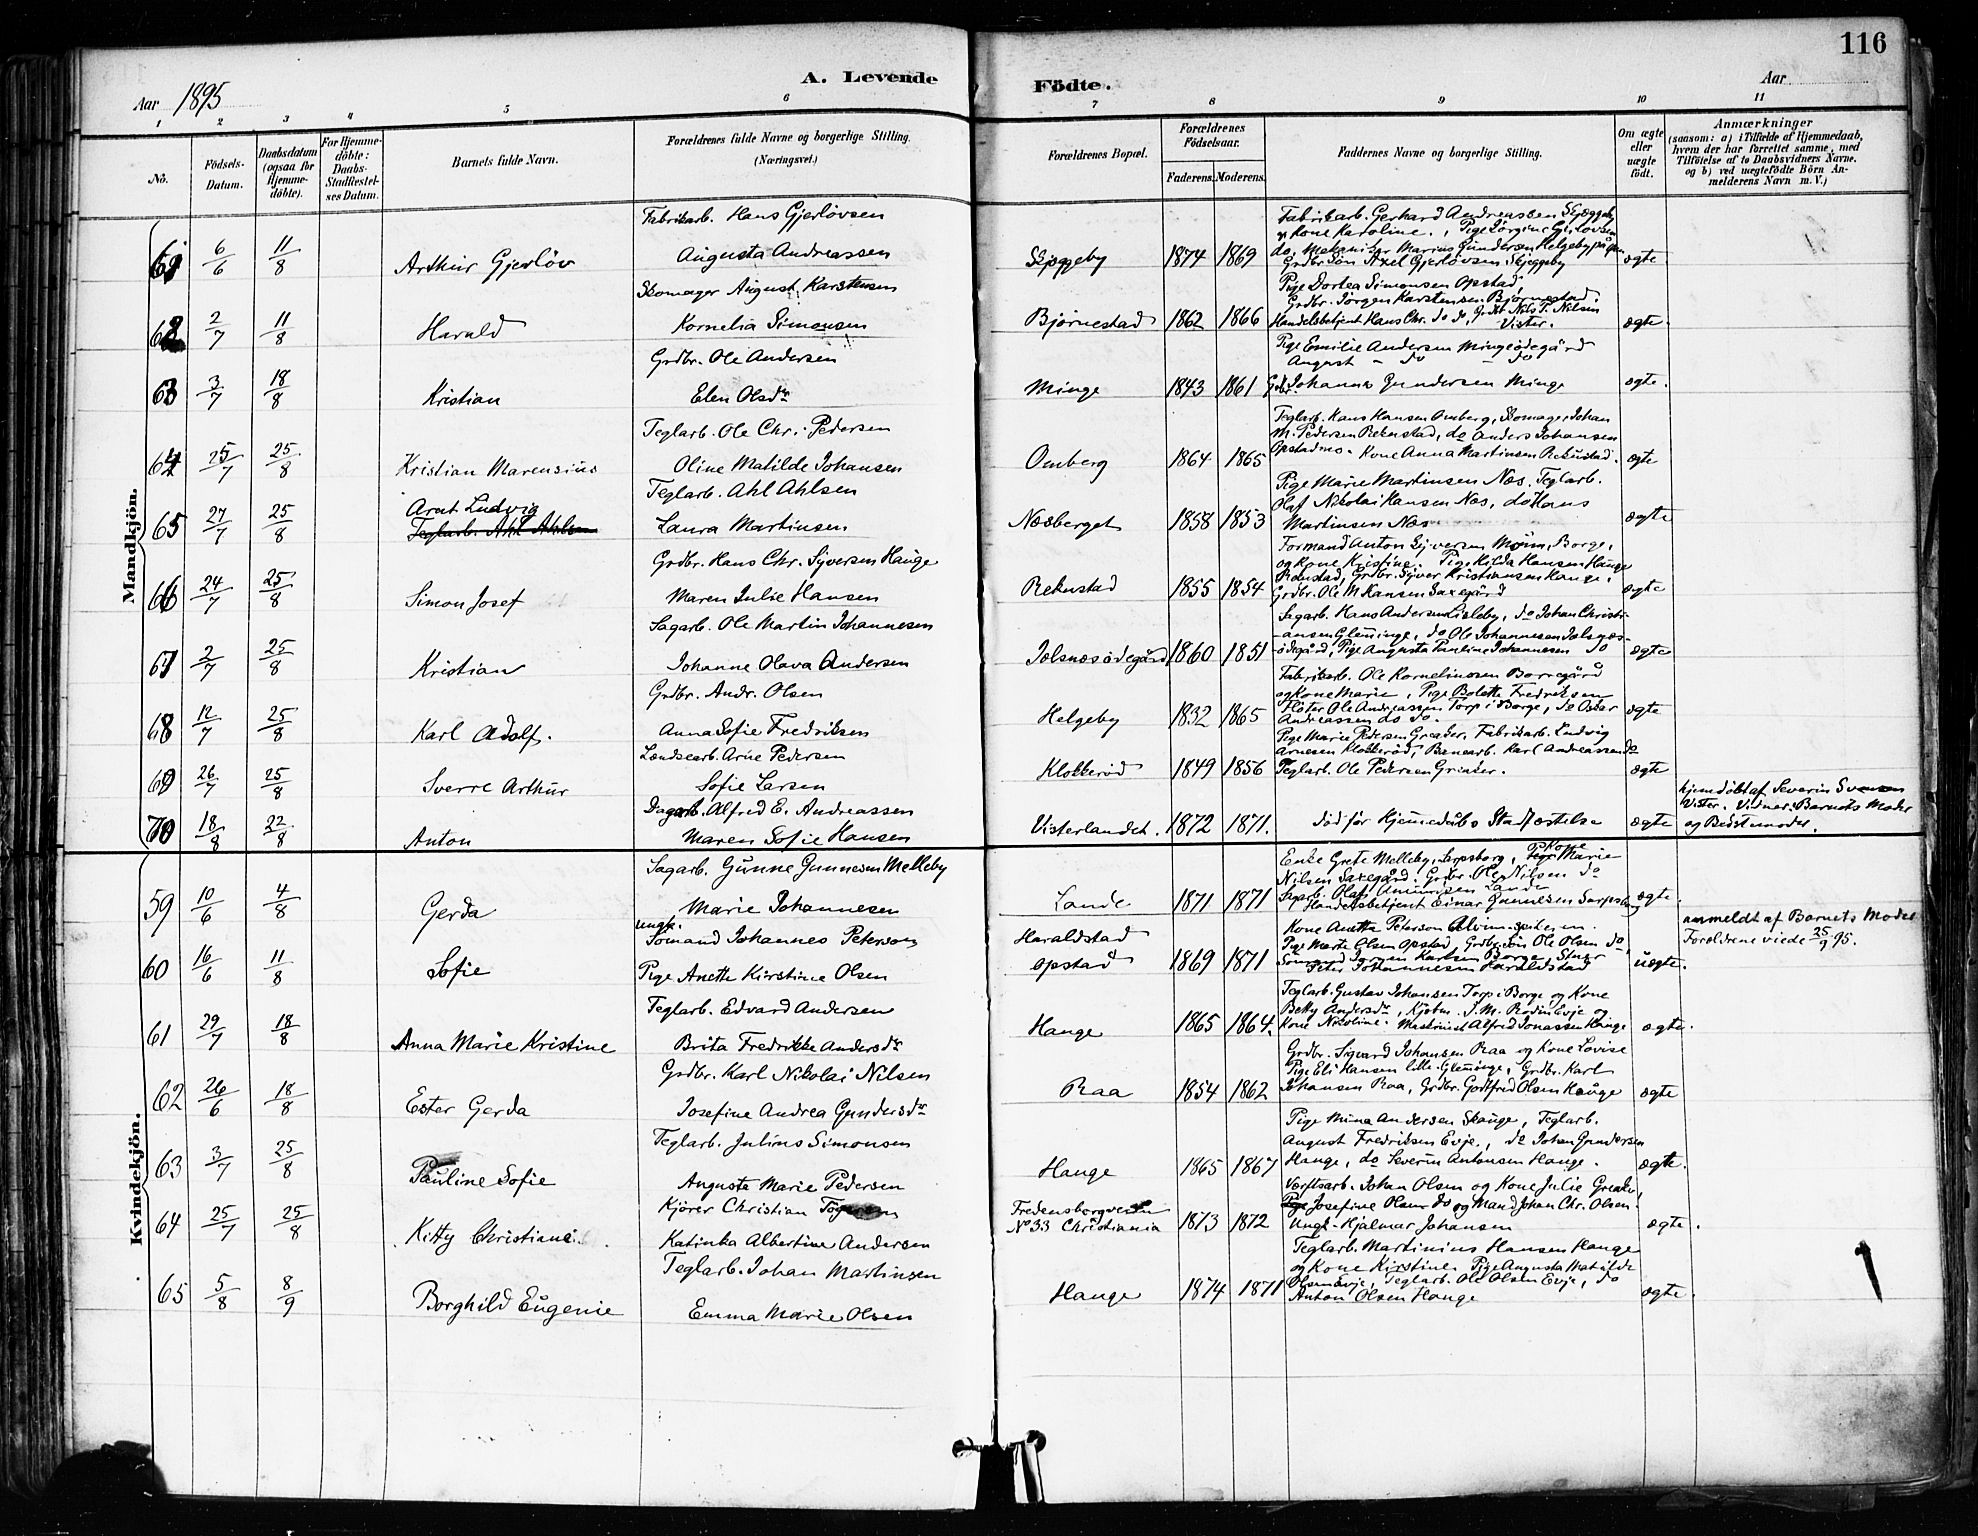 116
A. Levende Födte.
Aar 1895
Aar
1 2 3 4 5 6 7 8 9 10 11
No.
Födsels-Datum.
Daabsdatum (ogsaa for Hjemme-döbte).
For Hjemme-döbte: Daabs-Stadfæstel-ses Datum.
Barnets fulde Navn.
Forældrenes fulde Navne og borgerlige Stilling. (Næringsvei.)
Forældrenes Bopæl.
Forældrenes Födselsaar.
Faderens. Moderens.
Faddernes Navne og borgerlige Stilling.
Om ægte eller uægte födt.
Anmærkninger
(saasom: a) i Tilfælde af Hjemmedaab, hvem der har forrettet samme, med Tilföielse af to Daabsvidners Navne. og b) ved uægtefödte Börn An-melderens Navn m. V.)
Mandkjön.
Fabrikarb. Hans Gjerløvsen
61 6/6 11/8 Arthur Gjerløv Augusta Andreassen Skjeggeby 1874 1869 ægte
Fabrikarb. Gerhard Andreassen Skjeggeby
og Kone Karoline., Pige Jörgine Gjerløvsen
do, Mekaniker Marius Gundersen Helgeby
Grdbr Søn Axel Gjerløvsen Skjeggeby
Skomager August Karstensen
62 2/7 11/8 Harald Kornelia Simonsen Bjørnestad 1862 1866 ægte.
Pige Dortea Simonsen Opstad,
Grdbr. Jörgen Karstensen Bjørnestad.
Handelsbetjent Hans Chr. do do, Grdbr Nils T. Nilsen
Vister.
Grdbr. Ole Andersen
63 3/7 18/8 Kristian Elen Olsdr Minge 1843 1861 ægte.
Pige Emilie Andersen Mingeødegård
August - do - do
Grdbr. Johannes Gundersen Minge
Teglarb. Ole Chr. Pedersen
64 25/7 25/8 Kristian Marensius Oline Matilde Johansen Omberg 1864 1865 ægte
Teglarb. Hans Hansen Omberg, Skomager Johan
M. Pedersen Rekustad, do Anders Johansen
Opstadmo. Kone Anna Martinsen Rekustad.
Teglarb. Ahl Ahlsen
65 27/7 25/8 Arnt Ludvig Laura Martinsen Næsberget 1858 1853 ægte
Teglarb. Ahl Ahlsen
Pige Marie Martinsen Næs, Teglarb.
Olaf Nikolai Hansen Næs, do Hans
Martinsen Næs
Grdbr. Hans Chr. Syversen Hauge
66 24/7 25/8 Simon Josef Maren Julie Hansen Rekustad 1855 1854 ægte
Formand Anton Syversen Moum, Borge,
og Kone Kristine. Pige Hilda Hansen Hauge
Rekustad, Grdbr. Syver Kristiansen Hauge,
Grdbr. Ole M Hansen Saxegård
Sagarb. Ole Martin Johannesen
67 2/7 25/8 Kristian Johanne Olava Andersen Jolsnæsødegård 1860 1851 ægte
Sagarb. Hans Andersen Lisleby, do Johan Christi-
ansen Glemminge, do Ole Johannesen Jolsnæs-
ødegård, Pige Augusta Pauline Johannesen do
Grdbr. Andr. Olsen
68 12/7 25/8 Karl Adolf. Anna Sofie Fredriksen Helgeby 1832 1865 ægte
Fabrikarb. Ole Korneliussen Borregård
og Kone Marie, Pige Bolette Fredriksen
Fløter Ole Andreassen Torp i Borge, do Oskar
Andreassen do do.
Lændsearb. Arne Pedersen
69 26/7 25/8 Sverre Arthur Sofie Larsen Klokkerød 1849 1856 ægte
Pige Marie Pedersen Greaker. Fabrikarb. Ludvig
Arnesen Klokkerød, Banearb. Karl Andreassen do
Teglarb. Ole Pedersen Greaker.
Dagarb. Alfred E. Andreassen
70 18/8 22/8 Anton Maren Sofie Hansen Visterlandet. 1872 1871. død før Hjemmedåbs Stadfæstelse ægte
hjemdøbt af Severin Svensen
Vister. Vidner: Barnets Moder
og Bedstemoder.
Kvindekjön.
Sagarb. Gunne Gunnesen Melleby
59 10/6 4/8 Gerda Marie Johannesen Lande 1871 1871 ægte.
Enke Grete Melleby, Sarpsborg, Kone Marie
Nilsen Saxegård. Grdbr. Ole Nilsen do
Sagarb. Olaf Amundsen Lande
Handelsbetjent Einar Gunnesen Sarpsborg
ungk.
Sömand Johannes Peterson
60 16/6 11/8 Sofie Pige Anette Kirstine Olsen Haraldstad Opstad 1869 1871 uægte.
Kone Anette Peterson
Pige Marte Olsen Opstad, Grdbr.Søn Ole Olsen do,
Sømand Jørgen Karlsen Borge
Peter Johannesen Haraldstad
anmeldt af Barnets Moder
Forældrene viede 25/9 95.
Teglarb. Edvard Andersen
61 29/7 18/8 Anna Marie Kristine Brita Fredrikke Andersdr Hauge 1865 1864. ægte.
Teglarb. Gustav Johansen Torp i Borge og Kone
Betty Andersdr, Kjøbm. J. M. Rødin Evje og
Kone Nikoline. Maskinist Alfred Jonassen Hauge
Grdbr. Karl Nikolai Nilsen
62 26/6 18/8 Ester Gerda Josefine Andrea Gundersdr Raa 1854 1862 ægte
Grdbr. Sigvard Johansen Raa og Kone Lovise
Pige Eli Hansen Lille-Glemminge, Grdbr. Karl
Johansen Raa, Grdbr. Godtfred Olsen Hauge
Teglarb. Julius Simonsen
63 3/7 25/8 Pauline Sofie Augusta Marie Pedersen Hauge 1865 1867 ægte.
Pige Mina Andersen Skauge, Teglarb.
August Fredriksen Evje., do Johan Gundersen
Hauge, do Severin Antonsen Hauge.
Kjörer Christian
64 25/7 25/8 Kitty Christiane. Katinka Albertine Andersen Fredensborgveien No 33 Christiania 1873 1872 ægte.
Værftsarb. Johan Olsen og Kone Julie Greaker,
Pige Josefine Olsen do og Mand Johan Chr. Olsen.
Ungk. Hjalmar Johansen
Teglarb. Johan Martinsen
65 5/8 8/9 Borghild Eugenie Emma Marie Olsen Hauge 1874 1871 ægte.
Teglarb. Martinius Hansen Hauge
og Kone Kirstine. Pige Augusta Matilde
Olsen Evje, Teglarb. Ole Olsen Evje, do
Anton Olsen Hauge